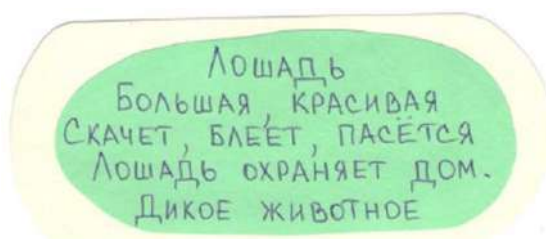 Лошадь
Большая, красивая
Скачет, блеет, пасётся
Лошадь охраняет дом.
Дикое животное